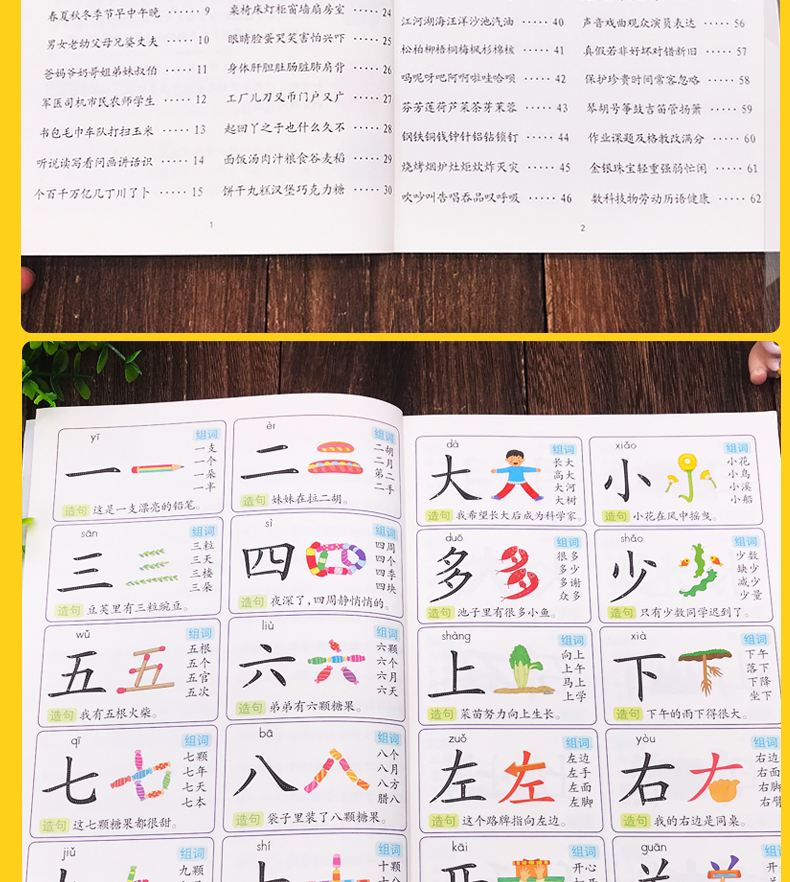 春夏秋冬季节早中午晚 ······ 9
男女老幼父母兄婆丈夫 ····· 10
爸妈爷奶哥姐弟妹叔伯 ····· 11
军医司机市民农师学生 ····· 12
书包毛巾车队打扫玉米 ····· 13
听说读写看问画讲话识 ····· 14
个百千万亿几丁川了卜 ····· 15
桌椅床灯柜窗墙扇房室 ····· 24
眼睛脸蛋哭笑害怕兴吓 ····· 25
身体肝胆肚肠脏肺肩背 ····· 26
工厂儿刀叉币门户又广 ····· 27
起回丫之于也什么久不 ····· 28
面饭汤肉汁粮食谷麦稻 ····· 29
饼干丸糕汉堡巧克力糖 ····· 30
1
江河湖海汪洋沙池汽油 ····· 40
松柏柳梧桐梅枫杉棉桉 ····· 41
吗呢呀吧阿啊啦哇哈呗 ····· 42
芬芳莲荷芦菜茶芽茉蓉 ····· 43
钢铁铜钱钟针铝钻锁钉 ····· 44
烧烤烟炉灶炬炊炸灭灾 ····· 45
吹吵叫告唱吞品叹呼吸 ····· 46
声音戏曲观众演员表达 ····· 56
真假若非好坏对错新旧 ····· 57
保护珍贵时间常客忽略 ····· 58
琴胡号筝鼓吉笛管扬萧 ····· 59
作业课题及格教改满分 ····· 60
金银珠宝轻重强弱忙闲 ····· 61
数科技物劳动历语健康 ····· 62
2
yī
一
组词
一支
一个
一朵
一半
造句 这是一支漂亮的铅笔。
èr
二
组词
二胡
二月
第二
二手
造句 妹妹在拉二胡。
sān
三
组词
三粒
三天
三楼
三朵
造句 豆荚里有三粒豌豆。
sì
四
组词
四周
四个
四季
四块
造句 夜深了,四周静悄悄的。
wǔ
五
组词
五根
五个
五官
五次
造句 我有五根火柴。
liù
六
组词
六颗
六个
六月
六天
造句 弟弟有六颗糖果。
qī
七
组词
七颗
七年
七天
七本
造句 这七颗糖果都很甜。
bā
八
组词
八个
八月
八方
腊八
造句 袋子里装了八颗糖果。
jiǔ
组词
九颗
shí
组词
十颗
dà
大
组词
长大
高大
大河
大树
造句 我希望长大后成为科学家。
xiǎo
小
组词
小花
小鸟
小溪
小船
造句 小花在风中摇曳。
duō
多
组词
很多
多少
多谢
众多
造句 池子里有很多小鱼。
shǎo
少
组词
少数
缺少
减少
少量
造句 只有少数同学迟到了。
shàng
上
组词
向上
上午
马上
上学
造句 菜苗努力向上生长。
xià
下
组词
下午
落下
下降
坐下
造句 下午的雨下得很大。
zuǒ
左
组词
左边
左手
左面
左脚
造句 这个路牌指向左边。
yòu
右
组词
右边
右面
右脚
右臂
造句 我的右边是同桌。
kāi
组词
开心
guān
组词